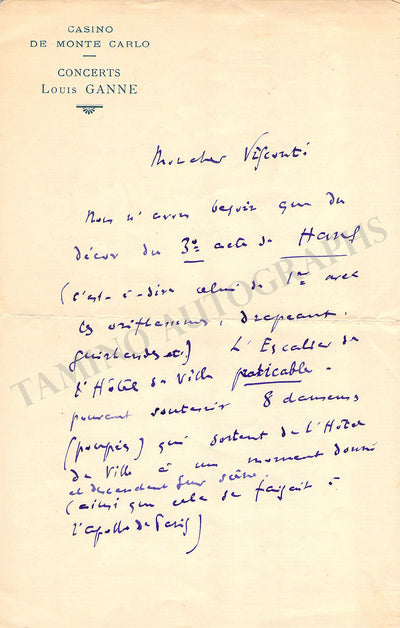 CASINO
DE MONTE CARLO
CONCERTS
LOUIS GANNE
Mon cher Visconti
Nous n'avons besoin que du
décor du 3e acte de Hans
(c'est-à-dire celui du 1er avec
les oriflammes, drapeaux,
guirlandes etc) L'Escalier de
l'Hôtel de Ville praticable -
pouvant soutenir 8 danseuses
(poupées) qui sortent de l'Hôtel
de Ville à un moment donné
et descendent sur scène.
(ainsi que cela se faisait à
l'apollo de Paris)
TAMINO AUTOGRAPHS